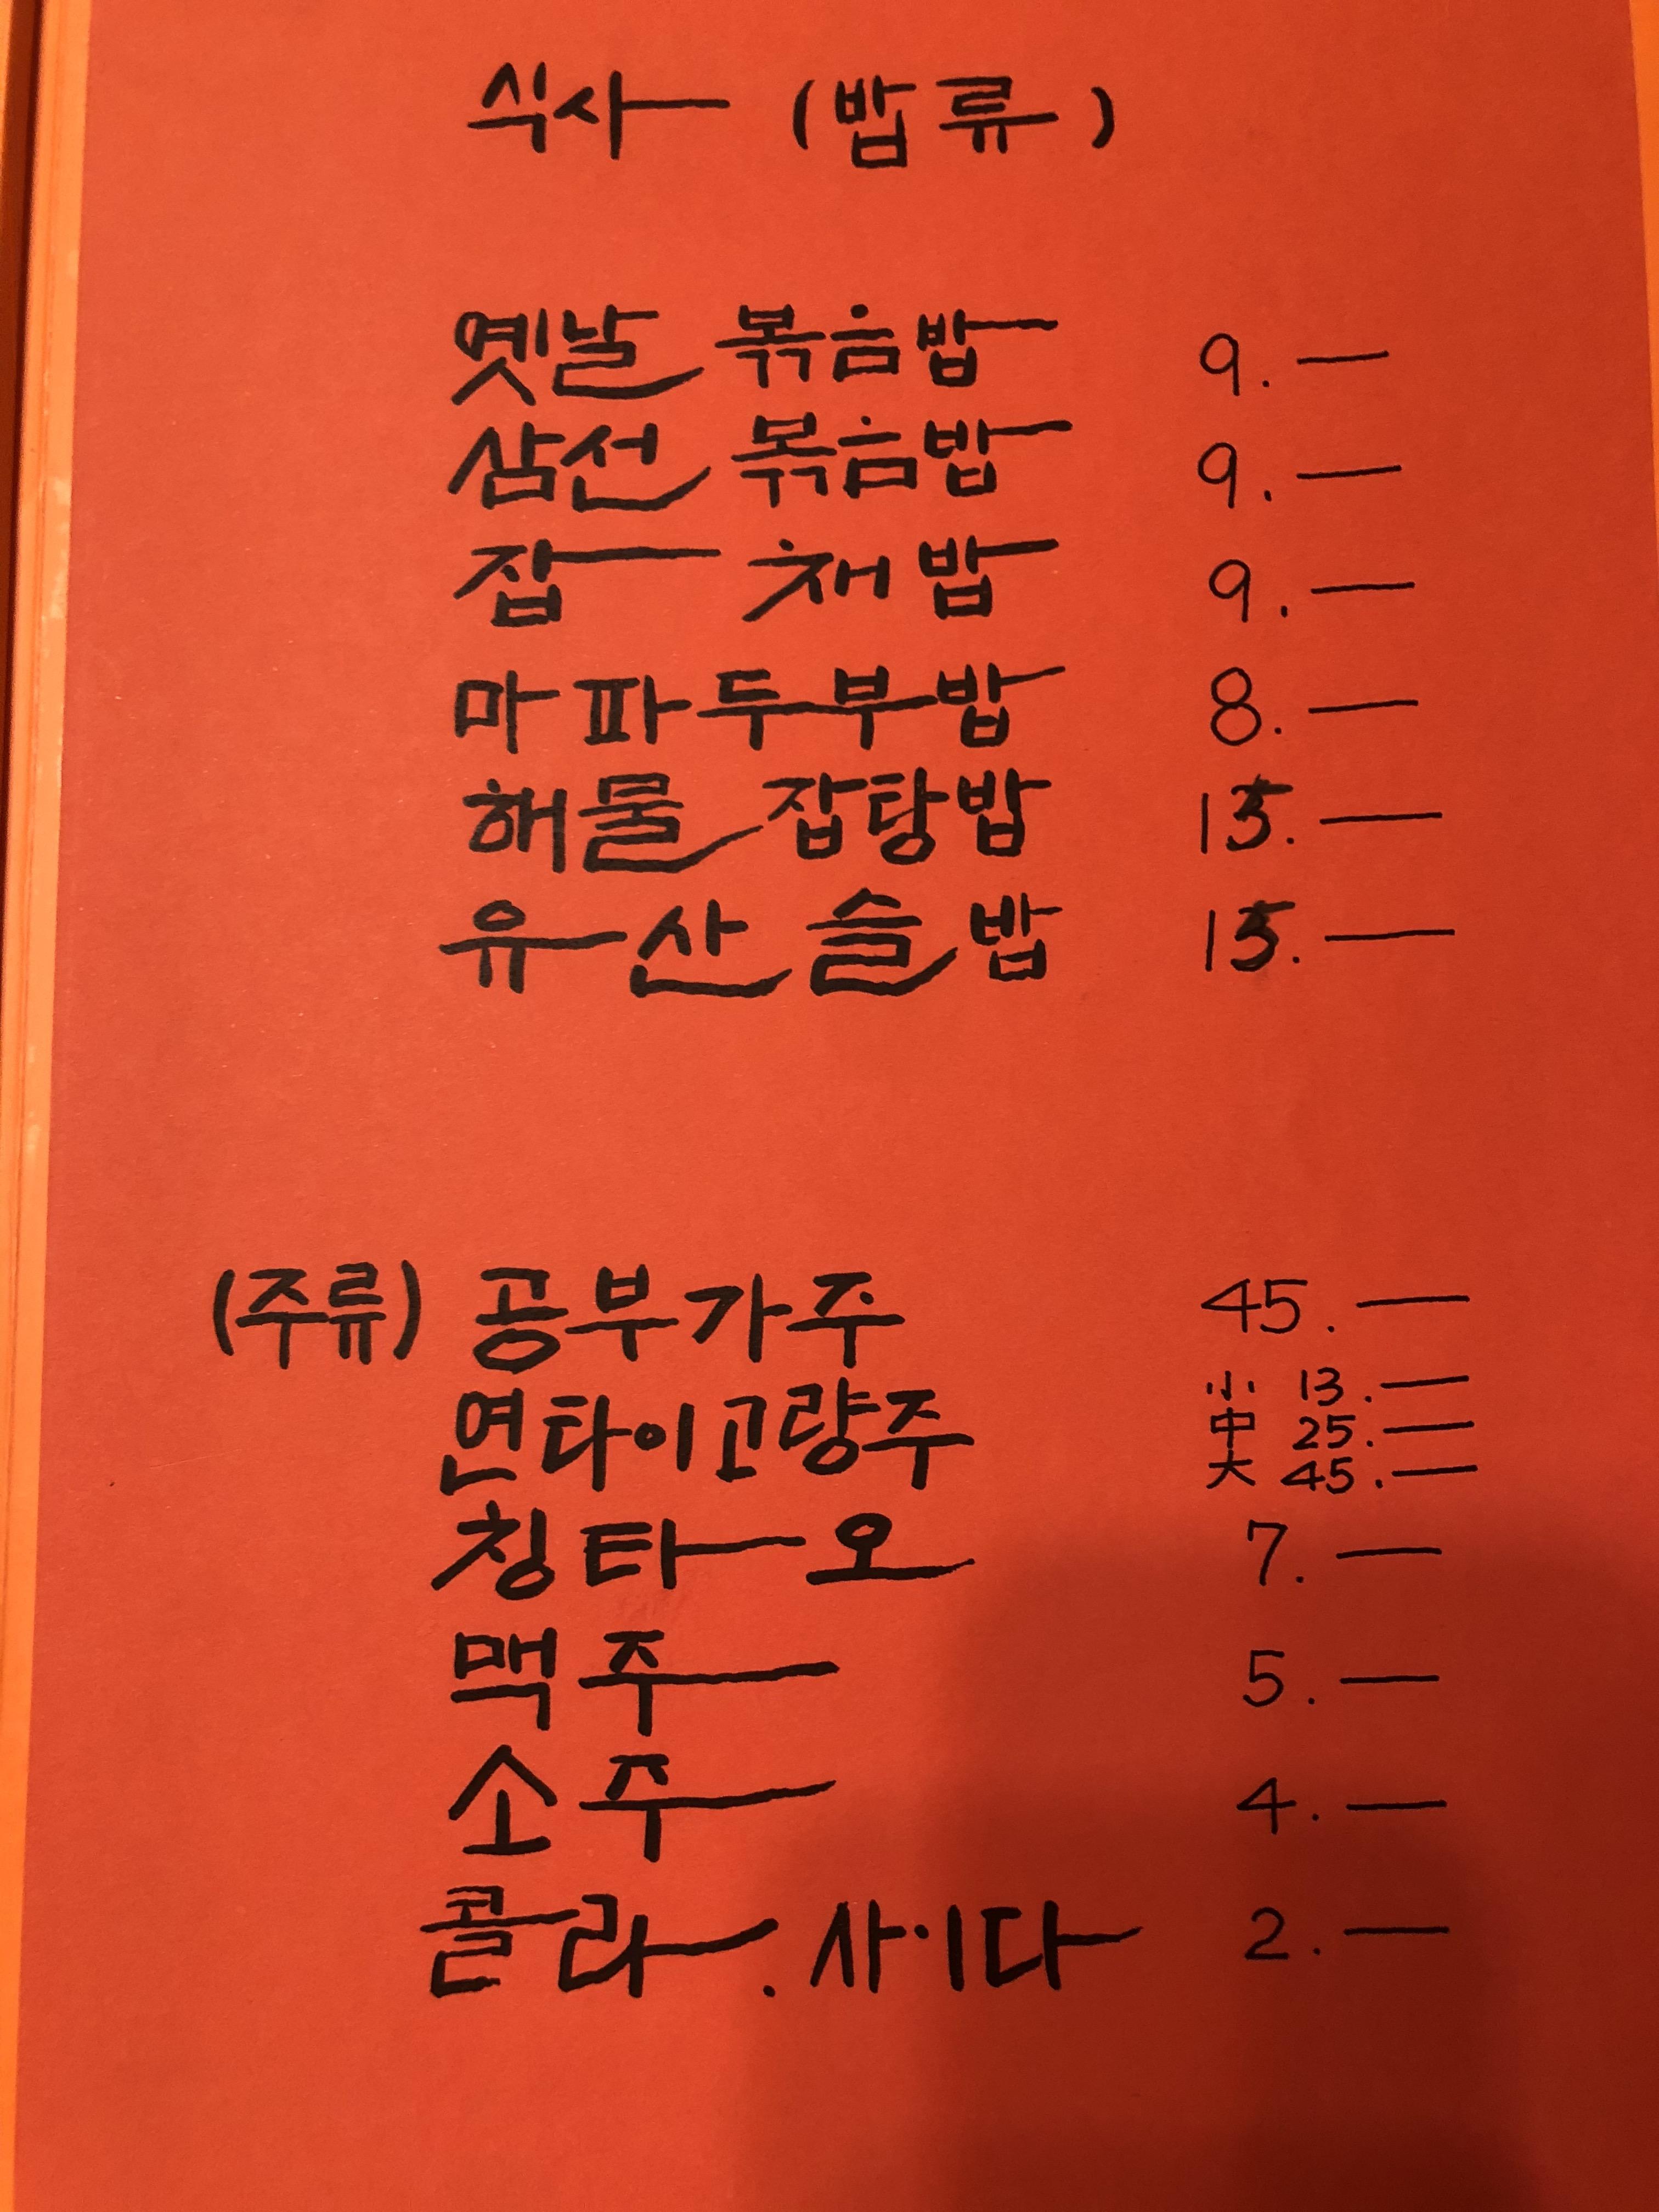 식사 (밥류)
옛날 볶음밥 9.—
삼선 볶음밥 9.—
잡채밥 9.—
마파두부밥 8.—
해물 잡탕밥 15.—
유산슬밥 15.—
(주류) 공부가주 45.—
연타이고량주 小 13.—
中 25.—
大 45.—
칭타오 7.—
맥주 5.—
소주 4.—
콜라.사이다 2.—